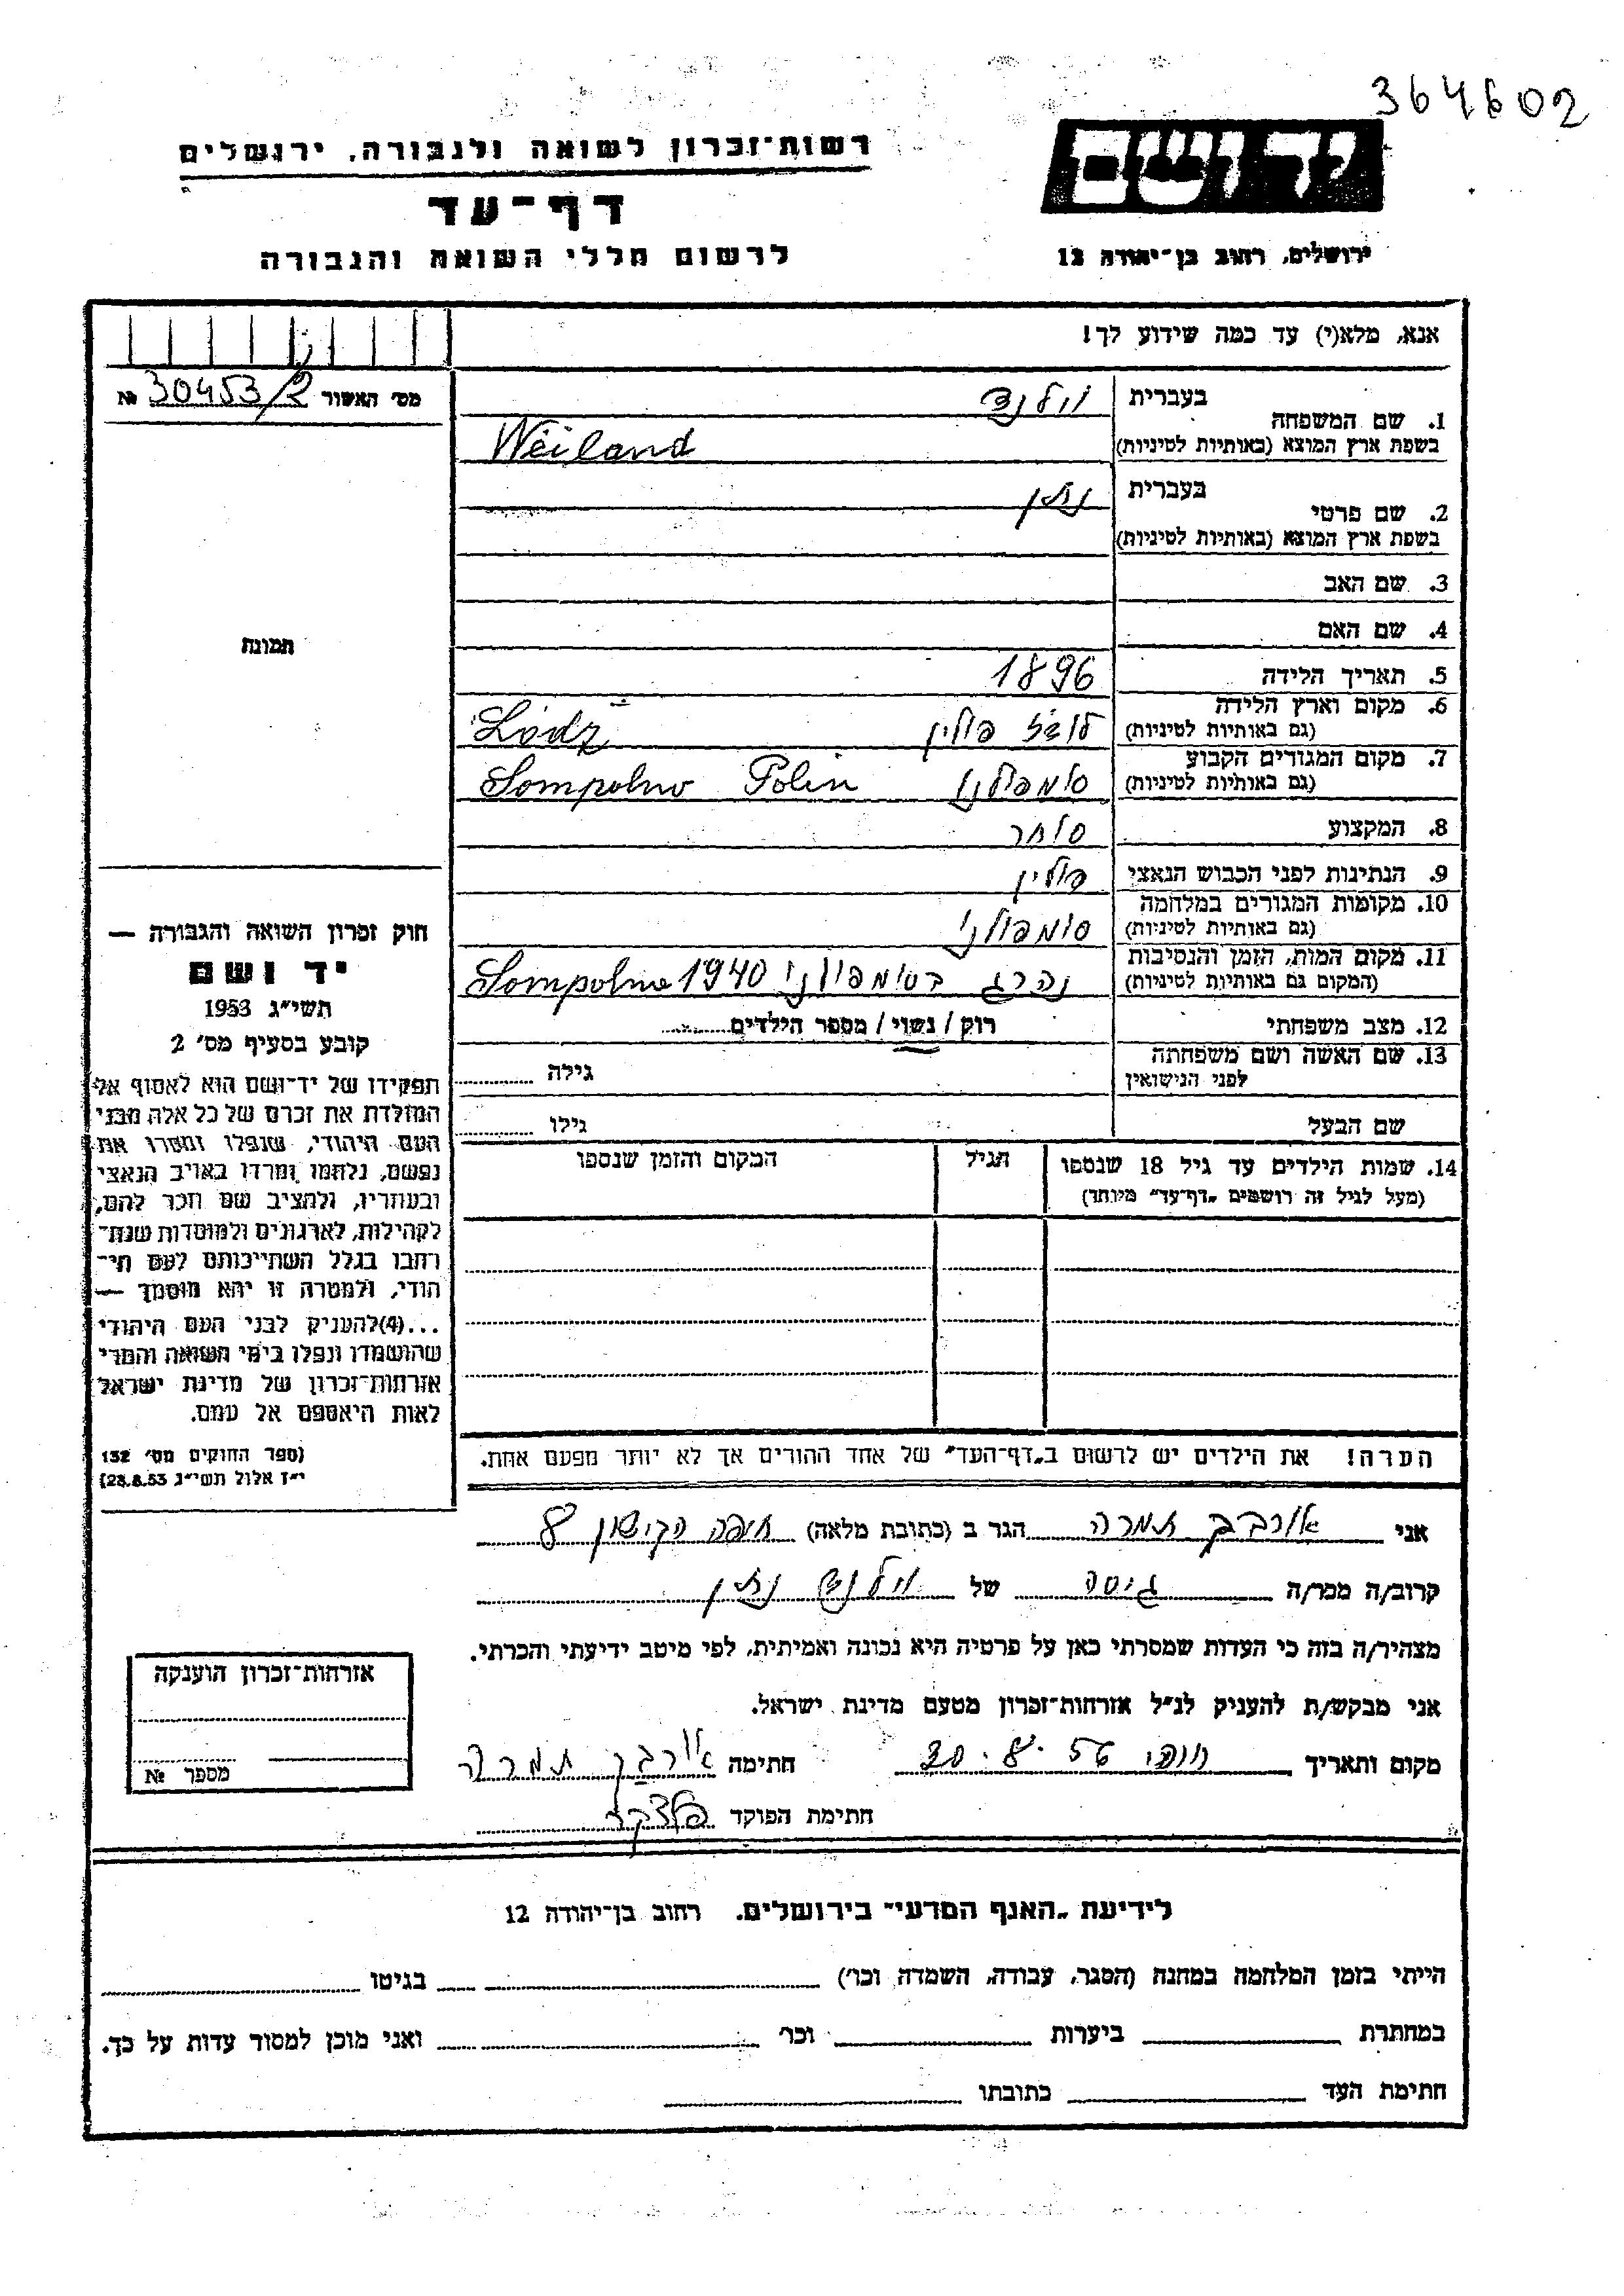 364602
רשות־זכרון לשואה ולגבורה, ירושלים
יד ושם
דף־עד
לרשום חללי השואה והגבורה
ירושלים, רחוב בן־יהודה 12
אנא, מלא(י) עד כמה שידוע לך!
מס׳ האשור 30453/2 №
1. שם המשפחה
בעברית
וילנד
בשפת ארץ המוצא (באותיות לטיניות)
Weiland
2. שם פרטי
בעברית
נתן
בשפת ארץ המוצא (באותיות לטיניות)
3. שם האב
4. שם האם
5. תאריך הלידה 1896
6. מקום וארץ הלידה
(גם באותיות לטיניות)
לודז פולין Lodz
7. מקום המגורים הקבוע
(גם באותיות לטיניות)
סומפולנו Sompolno Polin
8. המקצוע סוחר
9. הנתינות לפני הכבוש הנאצי פולין
10. מקומות המגורים במלחמה
(גם באותיות לטיניות)
סומפולני
11. מקום המות, הזמן והנסיבות
(המקום גם באותיות לטיניות)
נהרג בסומפולני 1940 Sompolno
12. מצב משפחתי רוק / נשוי / מספר הילדים
13. שם האשה ושם משפחתה
לפני הנישואין
גילה
שם הבעל גילו
14. שמות הילדים עד גיל 18 שנספו
(מעל לגיל זה רושמים „דף־עד״ מיוחד)
הגיל
המקום והזמן שנספו
הערה! את הילדים יש לרשום ב„דף־העד״ של אחד ההורים אך לא יותר מפעם אחת.
תמונה
חוק זכרון השואה והגבורה —
יד ושם
תשי״ג 1953
קובע בסעיף מס׳ 2
תפקידו של יד־ושם הוא לאסוף אל
המולדת את זכרם של כל אלה מבני
העם היהודי, שנפלו ומסרו את
נפשם, נלחמו ומרדו באויב הנאצי
ובעוזריו, ולהציב שם וזכר להם,
לקהילות, לארגונים ולמוסדות שנח־
רבו בגלל השתייכותם לעם הי־
הודי, ולמטרה זו יהא מוסמך —
...(4)להעניק לבני העם היהודי
שהושמדו ונפלו בימי השואה והמרי
אזרחות־זכרון של מדינת ישראל
לאות היאספם אל עמם.
(ספר החוקים מס׳ 132
י״ז אלול תשי״ג 28.8.53)
אני אורבך תמרה הגר ב (כתובת מלאה) חיפה הקישון 8
קרוב/ה מכר/ה גיסה של וילנד נתן
מצהיר/ה בזה כי העדות שמסרתי כאן על פרטיה היא נכונה ואמיתית, לפי מיטב ידיעתי והכרתי.
אני מבקש/ת להעניק לנ״ל אזרחות־זכרון מטעם מדינת ישראל.
מקום ותאריך 30.8.56 חתימה אורבך תמרה
חתימת הפוקד
אזרחות־זכרון הוענקה
מספר №
לידיעת „האגף המדעי״ בירושלים. רחוב בן־יהודה 12
הייתי בזמן המלחמה במחנה (הסגר, עבודה, השמדה וכו׳) בגיטו
במחתרת ביערות וכו׳ ואני מוכן למסור עדות על כך.
חתימת העד כתובתו